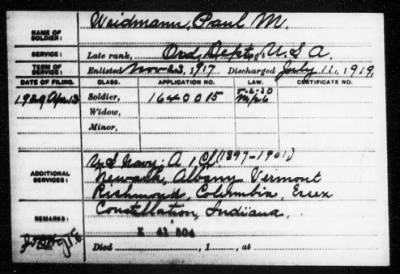 NAME OF SOLDIER: Weidmann, Paul M.
SERVICE: Late rank, Ord. Dept, U.S.A.
TERM OF SERVICE: Enlisted Nov 23, 1917 Discharged July 11, 1919
DATE OF FILING. CLASS. APPLICATION NO. LAW. CERTIFICATE NO.
1929 Apr 13 Soldier, 1640015
Widow,
Minor,
ADDITIONAL SERVICES: U.S. Navy: (1897-1901)
Newark, Albany Vermont
Richmond, Columbia, Essex
Constellation, Indiana,
REMARKS:
Died , 1 , at